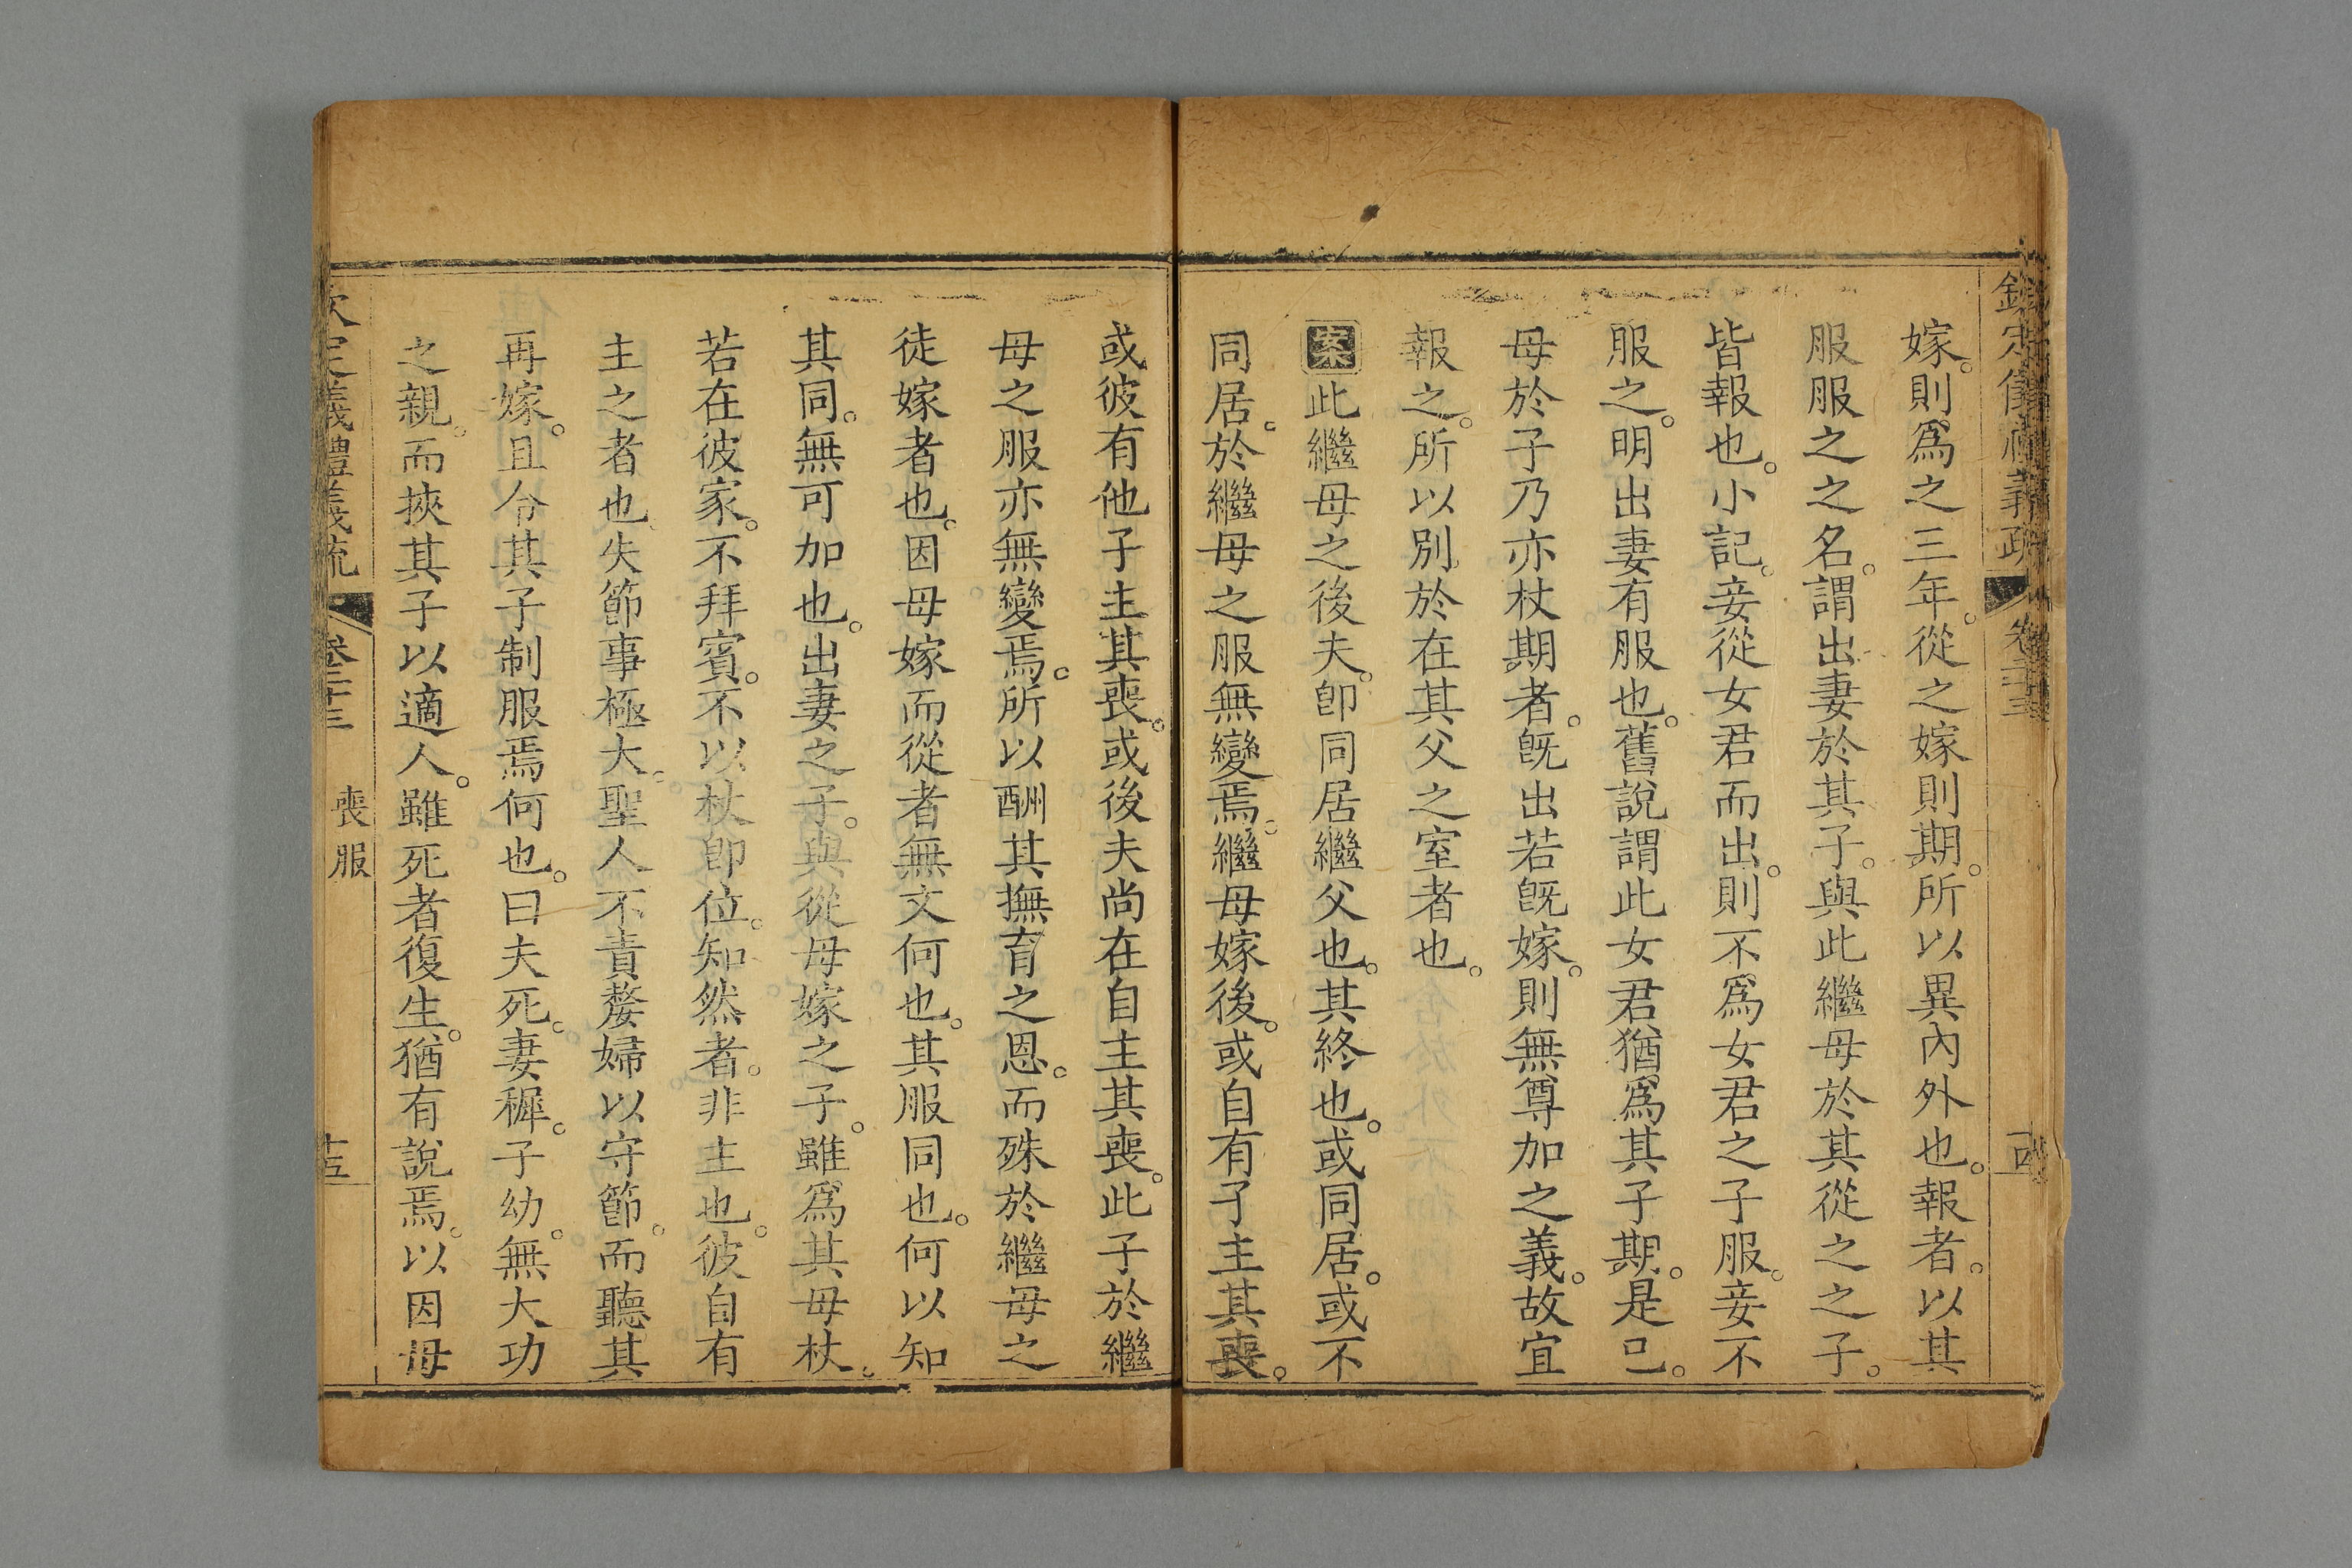 欽定儀禮義疏 卷二十三 十四
嫁。則爲之三年。從之嫁則期。所以異內外也。報者。以其
服服之之名。謂出妻於其子。與此繼母於其從之之子。
皆報也。小記。妾從女君而出。則不爲女君之子服。妾不
服之。明出妻有服也。舊說謂此女君猶爲其子期。是已。
母於子乃亦杖期者。旣出若旣嫁。則無尊加之義。故宜
報之。所以別於在其父之室者也。
案此繼母之後夫。卽同居繼父也。其終也。或同居。或不
同居。於繼母之服無變焉。繼母嫁後。或自有子主其喪。
或彼有他子主其喪。或後夫尚在自主其喪。此子於繼
母之服亦無變焉。所以酬其撫育之恩。而殊於繼母之
徒嫁者也。因母嫁而從者無文何也。其服同也。何以知
其同。無可加也。出妻之子。與從母嫁之子。雖爲其母杖。
若在彼家。不拜賓。不以杖卽位。知然者。非主也。彼自有
主之者也。失節事極大。聖人不責嫠婦以守節。而聽其
再嫁。且令其子制服焉何也。曰夫死。妻穉。子幼。無大功
之親。而挾其子以適人。雖死者復生。猶有說焉。以因母
欽定義禮義疏 卷二十三 喪服 十五